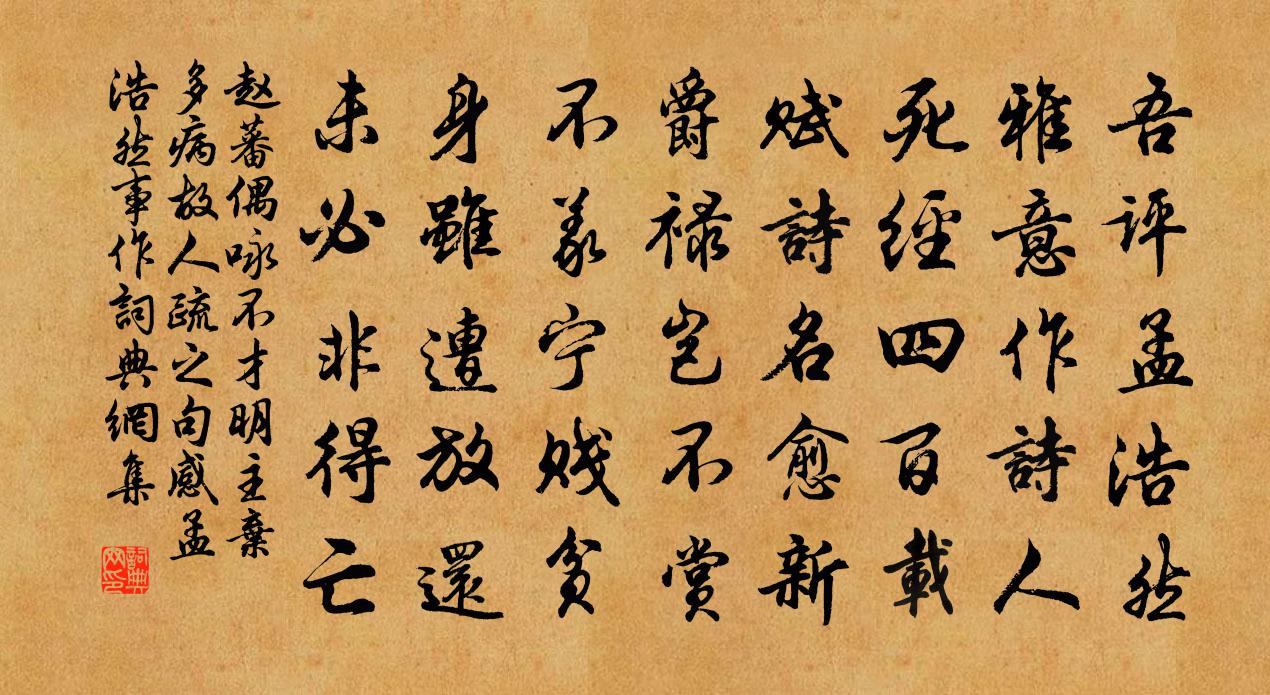 吾评孟浩然
雅意作詩人
死經四百載
赋詩名愈新
爵禄岂不赏
不義宁贱贫
身雖遭放還
未必非得亡
赵蕃偶咏不才明主棄
多病故人疏之句感孟
浩然事作詞典網集
詞典网印